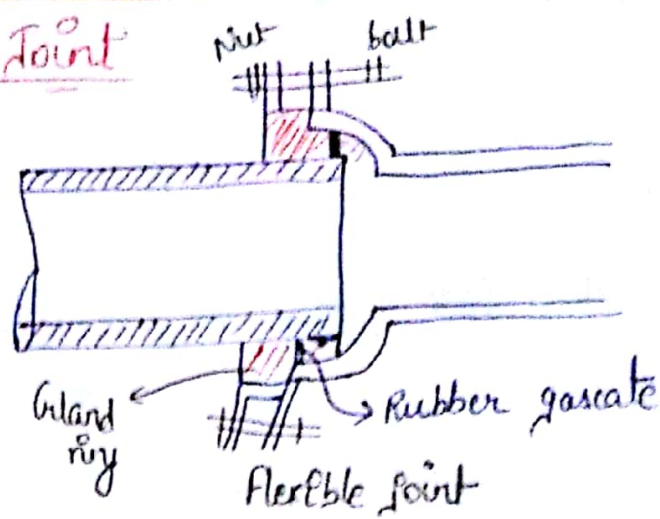 Joint
Nut bolt
Gland
ring
Rubber gascate
Flexible joint